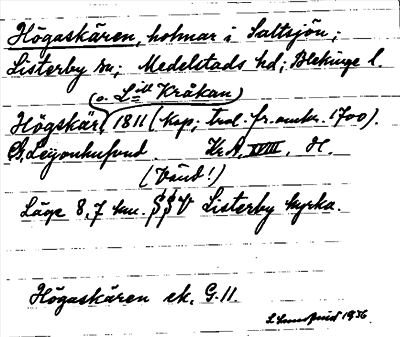 Högaskären, holmar i Saltsjön;
Listerby sn; Medelstads hd; Blekinge l.
(o. L:ill Kråkan)
Högskär, 1811 (kop; trol. fr. omkr. 1700).
G. Leijonhufvud KrA, XVIII, H.
(Vänd!)
Läge 8,7 km. SSV Listerby kyrka.
Högaskären ek. G. 11.
1936